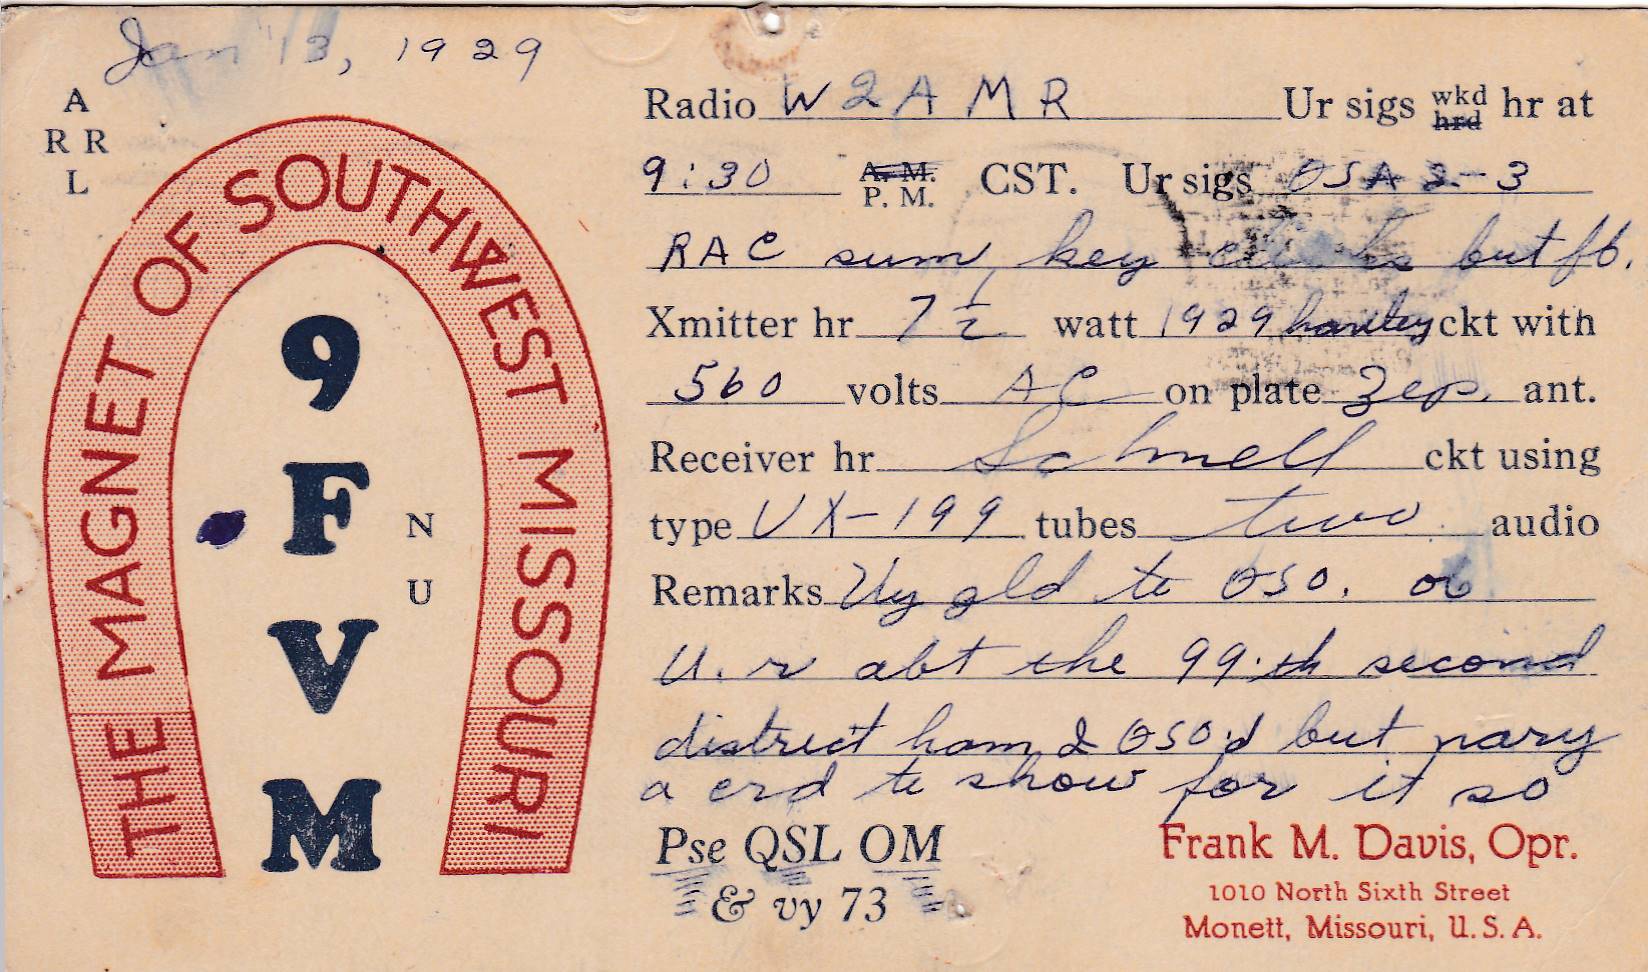 Jan 13, 1929
A
R R
L
THE MAGNET OF SOUTHWEST MISSOURI
9
F
V
M
N
U
Radio W2AMR Ur sigs wkd hrd hr at
9:30 A.M. P.M. CST. Ur sigs QSA 2-3
RAC sum, key clicks but fb.
Xmitter hr 7½ watt 1929 hartley ckt with
560 volts AC on plate Zep. ant.
Receiver hr Schnell ckt using
type UX-199 tubes two audio
Remarks Vy gld to QSO. ob
U.r abt the 99.th second
district ham I QSO'd but nary
a crd to show for it so
Pse QSL OM
& vy 73
Frank M. Davis, Opr.
1010 North Sixth Street
Monett, Missouri, U.S.A.